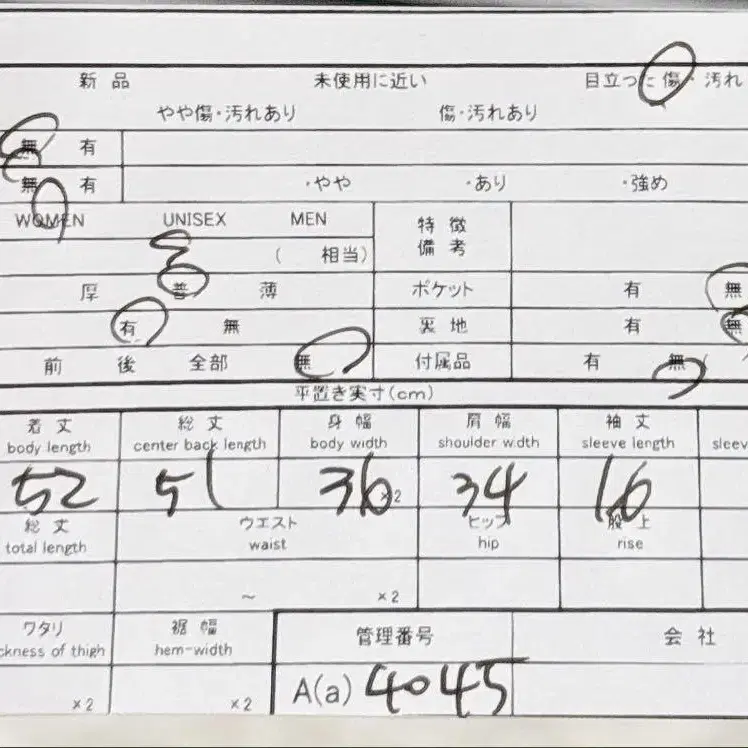 新品 未使用に近い 目立った傷・汚れ
やや傷・汚れあり 傷・汚れあり
無 有
無 有 ・やや ・あり ・強め
WOMEN UNISEX MEN 特徴
備考
( 相当)
厚 普 薄 ポケット 有 無
有 無 裏地 有 無
前 後 全部 無 付属品 有 無 (
平置き実寸(cm)
着丈 総丈 身幅 肩幅 袖丈
body length center back length body width shoulder width sleeve length sleev
52 51 36×2 34 16
総丈 ウエスト ヒップ 股上
total length waist hip rise
~ ×2
ワタリ 裾幅 管理番号 会社
ckness of thigh hem-width
×2 ×2 A(a) 4045